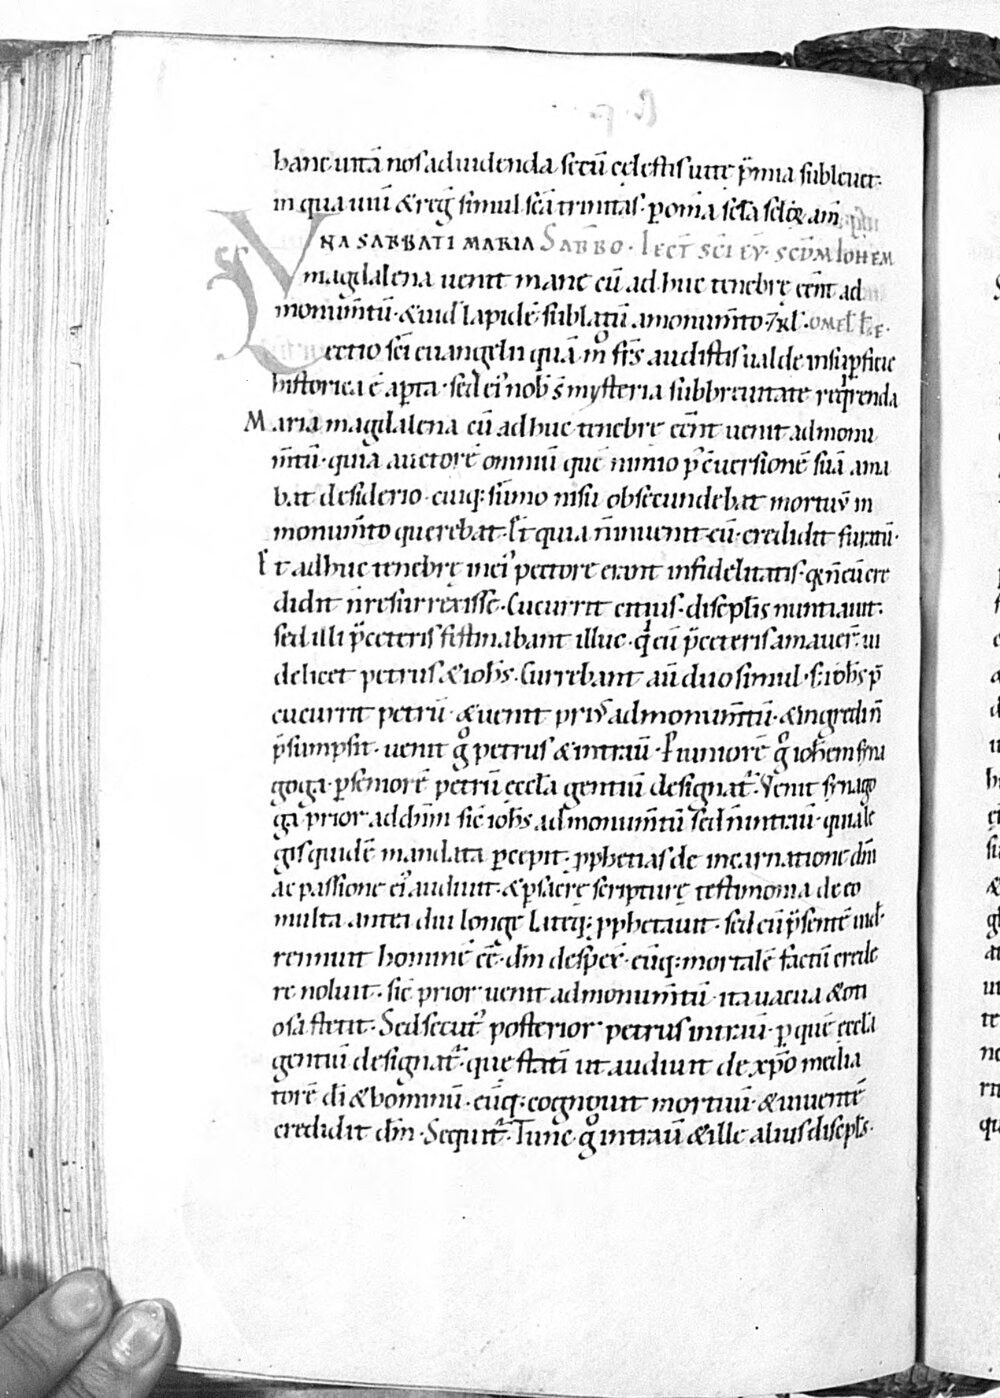 hanc uitā nos ad uidenda secū cęlestis uitę p̄mia subleuet·
in qua uiuit & reg̅ simul sc̄a trinitas· p om̄ia sc̄la scl̄oꝝ am̄
VNA SABBATI MARIA SABBO· LECT̄ SC̄I EV̄· SCD̄M IOHEM
magdalena uenit mane cū adhuc tenebrę eēnt ad
monum̄tū· & uid̄ lapidē sublatū a monum̄to· &rl̄· OMEL̄
Lectio sc̄i euangelii quā m̊ fr̄s audistis ualde in sup̱ficie
historica ē ap̱ta· sed ei' nob̄ s̄ mysteria sub breuitate req̇renda
Maria magdalena cū adhuc tenebrę eēnt uenit ad monu
m̄tū· quia auctorē omniū quē nimio p̄ euersionē suā ama
bat desiderio· cuiq; sūmo nisu obsecundebat mortuū in
monum̄to querebat· Et quia n̄ inuenit eū· credidit furatū·
Et adhuc tenebrę in ei' pectore erant infidelitatis· q̄ n̄ eū cre
didit n̄ resurrexisse· Cucurrit citius· discipl̄is nuntiauit·
sed illi p̄ ceteris festinabant illuc· q̇ eū p̄ ceteris amauer̄· ui
delicet petrus & ioh̄s· Currebant aū duo simul· s; ioh̄s p̄
cucurrit petrū· & uenit pri' ad monum̄tū· & ingredi n̄
p̄sumpsit· uenit g̊ petrus & intrauit· P iuniorē g̊ ioh̄em syna
goga· p̱ seniorē petrū eccl̄a gentiū designat'· Venit synago
ga prior ad dn̄m sic̄ ioh̄s ad monum̄tū sed n̄ intrauit· quia le
gis quidē mandata p̱cepit· pphetias de incarnatione dn̄i
ac passione ei' audiuit· & p̱ sacrę scripturę testimonia de eo
multa antea diu longe lateq; pphetauit· sed cū p̄sentē uid̄·
rennuit hominē eē· dm̄ despex̄· eūq; mortalē factū crede
re noluit· sic̄ prior uenit ad monum̄tū· ita uacua & oti
osa stetit· Sed secut' posterior petrus intrauit· p quē eccl̄a
gentiū designat'· quę statī ut audiuit de xp̄o media
torē dī & hominū· eūq; cognouit mortuū· & uiuentē
credidit dm̄· Sequit'· Tunc g̊ intrauit & ille alius discipl̄s·